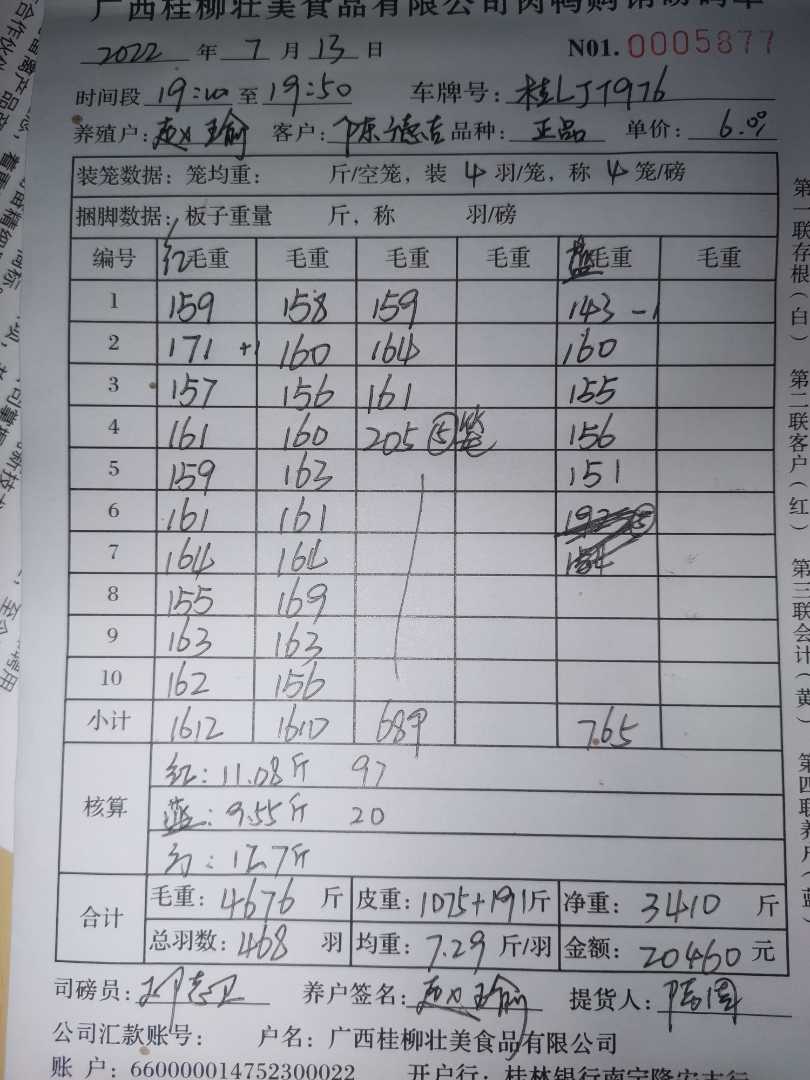 广西桂柳壮美食品有限公司肉鸭购销磅码单
2022 年 7 月 13 日 N01. 0005877
时间段 19:00 至 19:50 车牌号: 桂LJT976
养殖户: 赵瑜 客户: 陈德吉 品种: 正品 单价: 6.0
装笼数据: 笼均重: 斤/空笼, 装 4 羽/笼, 称 4 笼/磅
捆脚数据: 板子重量 斤, 称 羽/磅
编号 红毛重 毛重 毛重 毛重 毛重 毛重
1 159 158 159 143 -1
2 171 +1 160 164 160
3 157 156 161 155
4 161 160 205 ⑤笼 156
5 159 163 151
6 161 161
7 164 164
8 155 169
9 163 163
10 162 156
小计 1612 1610 689 765
核算
红: 11.08斤 97
蓝: 9.55斤 20
合计
毛重: 4676 斤 皮重: 1075+191斤 净重: 3410 斤
总羽数: 468 羽 均重: 7.29 斤/羽 金额: 20460 元
司磅员: 养户签名: 赵瑜 提货人:
公司汇款账号: 户名: 广西桂柳壮美食品有限公司
账 户: 660000014752300022 开户行: 桂林银行南宁隆安支行
第一联存根(白) 第二联客户(红) 第三联会计(黄) 第四联养户(蓝)